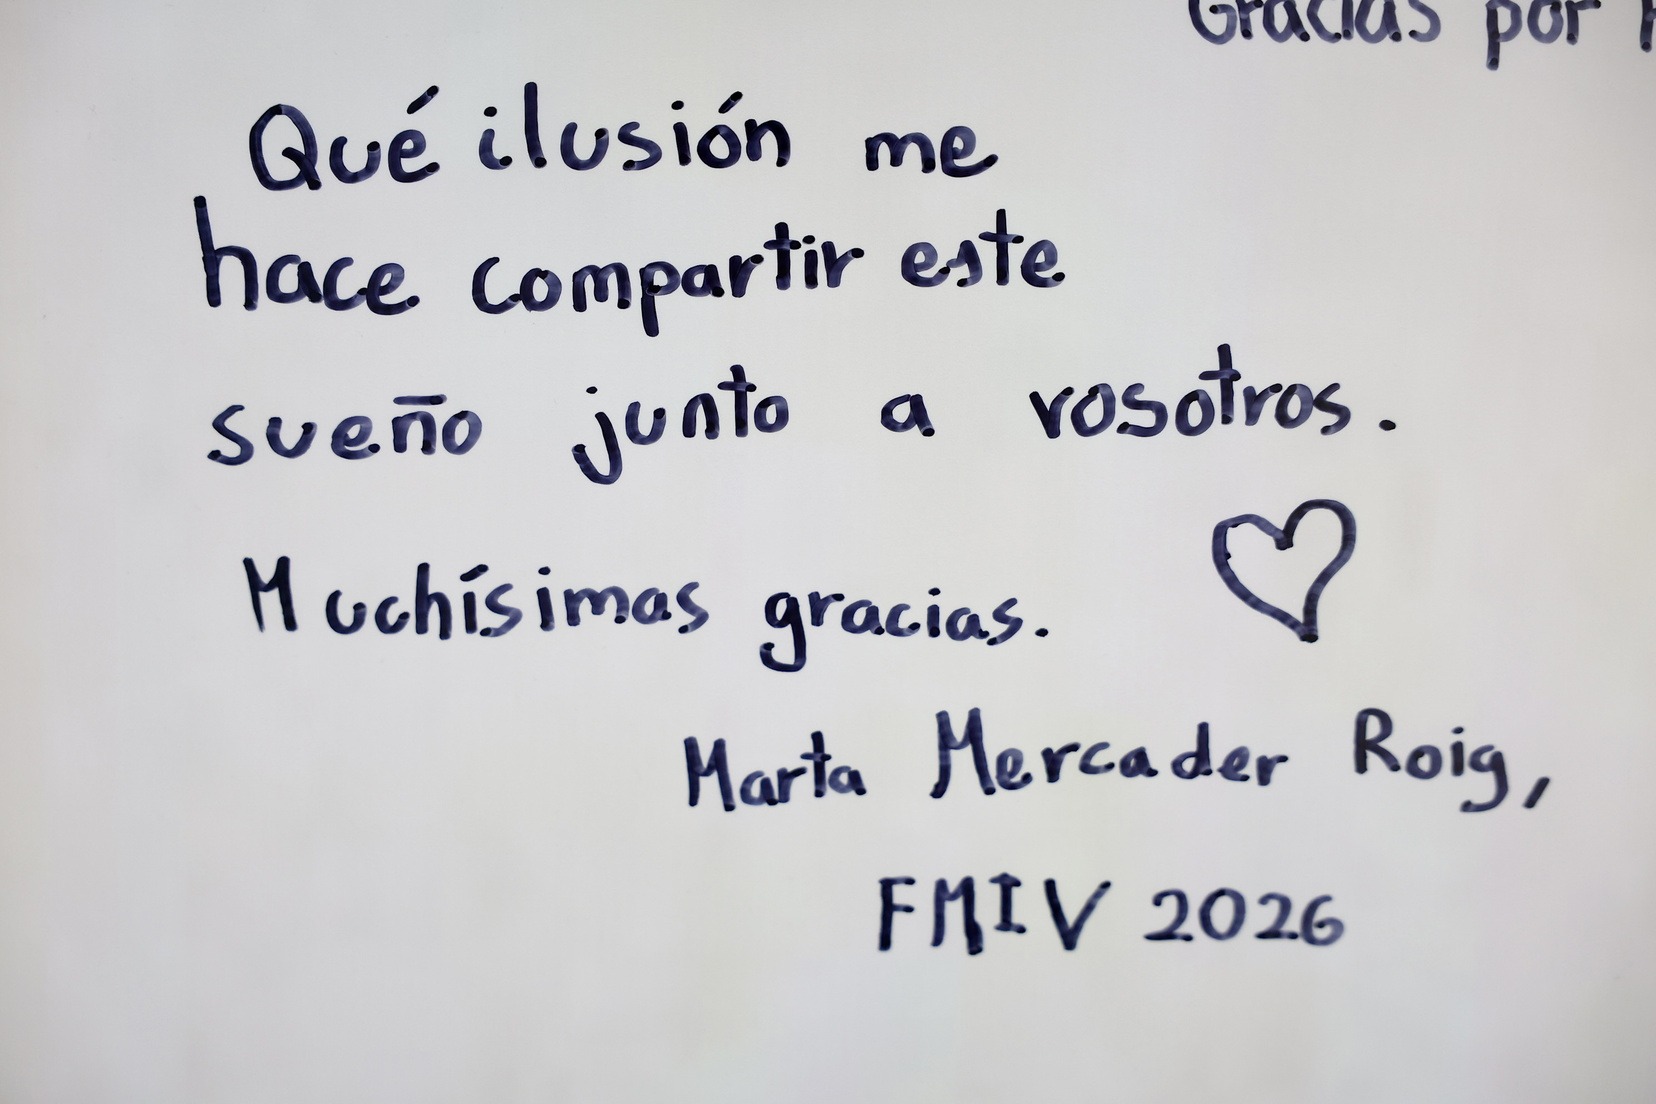 Gracias por
Qué ilusión me
hace compartir este
sueño junto a vosotros.
Muchísimas gracias.
Marta Mercader Roig,
FMIV 2026